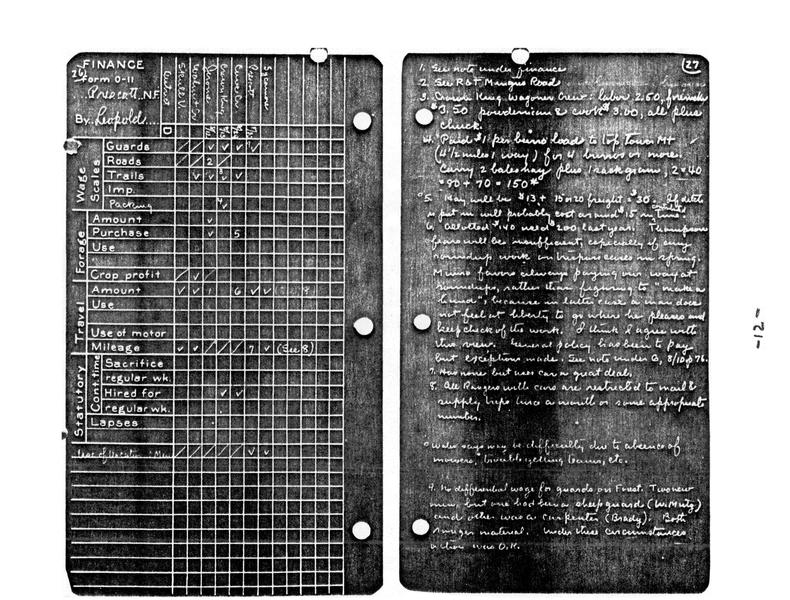 FINANCE
26
Form O-11
Prescott, N.F.
By: Leopold
District
Walnut Cr
Crown King
Sycamore
Wage Scales
Guards
Roads 2
Trails
Imp.
Packing 4
Forage
Amount
Purchase 5
Use
Crop profit
Travel
Amount 6
Use
Use of motor
Mileage 7 (See 8)
Statutory
Cont. time
Sacrifice
regular wk.
Hired for
regular wk.
Lapses
27
1. See note under finance
2. See R&T Mingus Road
3. Crown King Wagoner Crew: labor 2.50, foreman
$3.50 powderman & cook $3.00, all plus
chuck.
4. Paid $1 per burro loads to top Tower Mt
(4 1/2 miles 1 way) for 4 burros or more.
Carry 2 bales hay plus 1 sack grain, 2 = 40
= 80 + 70 = 150#
5. Hay will be $13 + 15 or 20 freight = $30. If ditch
is put in will probably cost around $15 in
6. Allotted $140 used $200 last year. Thompson
fears will be insufficient, especially if any
roundup work on trespass cases in spring.
Munro favors always paying our way at
roundups, rather than figuring to "make a
hand", because in latter case a man does
not feel at liberty to go where he pleases and
keep check of the work. I think I agree with
this view. General policy has been to pay
but exceptions made. See note under G, 8/10 p 76.
7. Has none but uses car a great deal.
8. All Rangers with cars are restricted to mail &
supply trips twice a month or some appropriate
number.
Water says may be difficulty due to absence of
mowers, trouble getting teams, etc.
9. No differential wage for guards on Forest. Two new
men, but one had been a sheep guard (W. Mintz)
and other was a carpenter (Brady). Both
Ranger material. Under these circumstances
action was O.K.
-12-